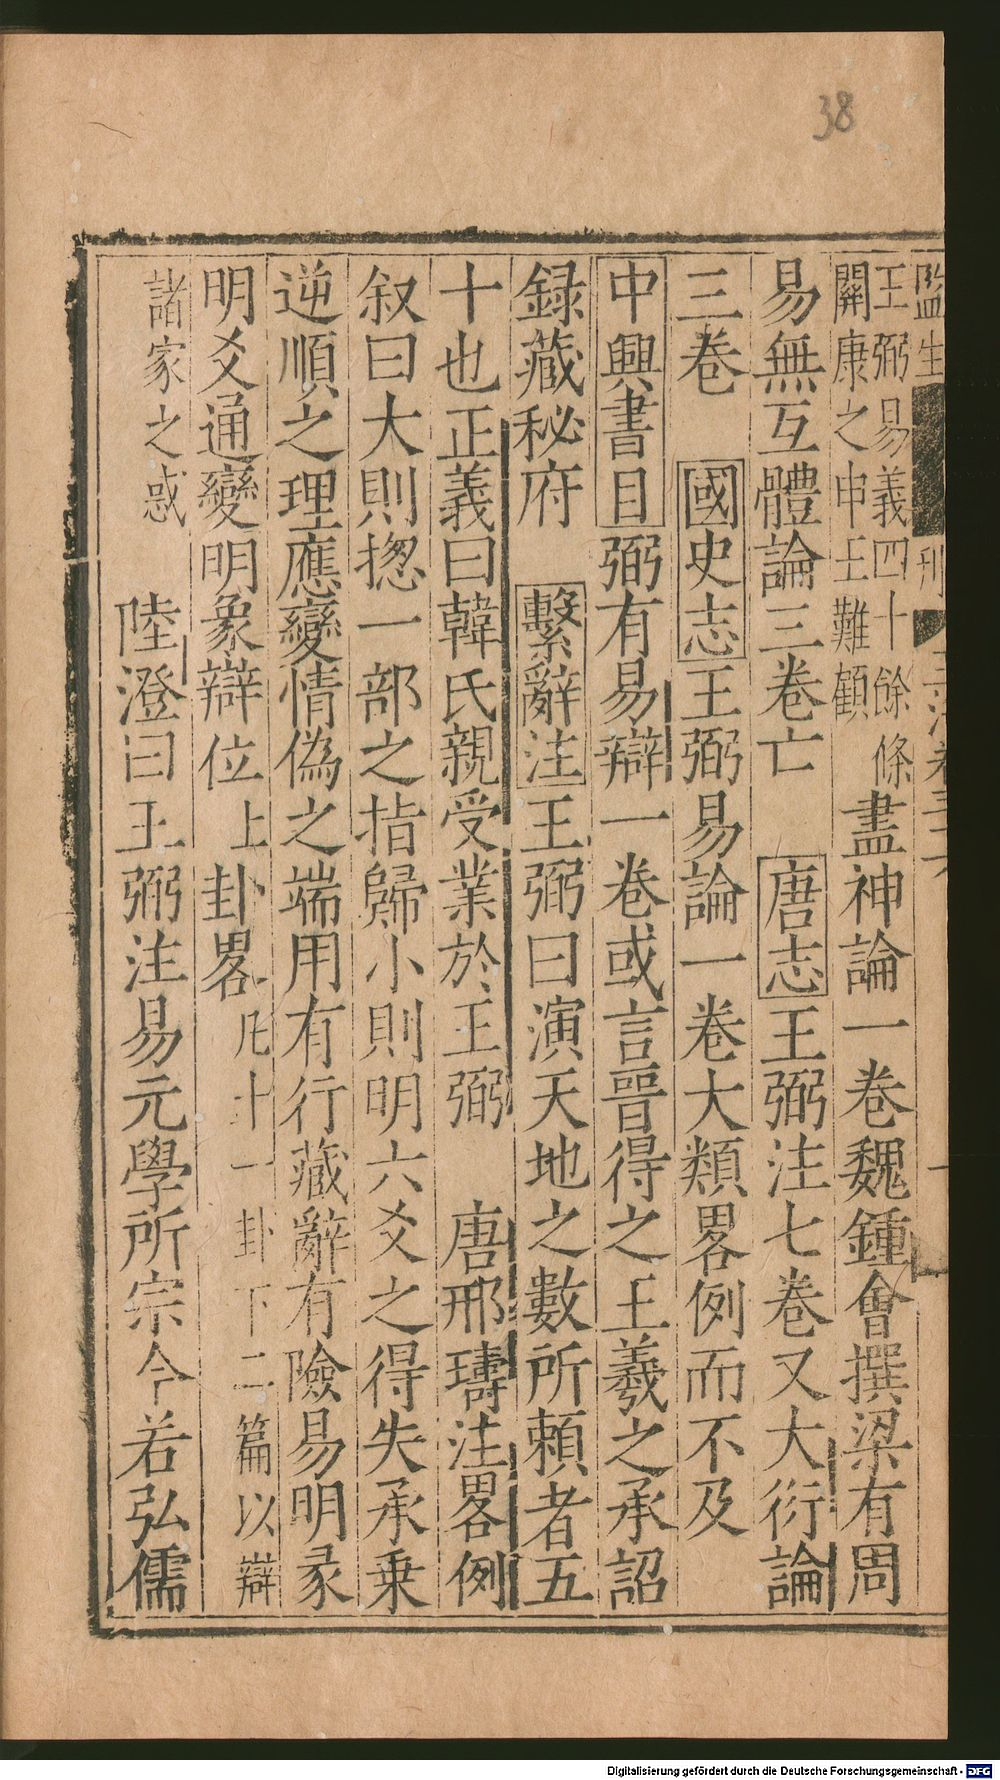 38
監生
刊
王弼易義四十餘條
關康之申王難顧
盡神論一卷魏鍾會撰梁有周
易無互體論三卷亡 唐志王弼注七卷又大衍論
三卷 國史志王弼易論一卷大類畧例而不及
中興書目弼有易辯一卷或言晉得之王羲之承詔
録藏秘府 繫辭注王弼曰演天地之數所賴者五
十也正義曰韓氏親受業於王弼 唐邢璹注畧例
叙曰大則揔一部之指歸小則明六爻之得失承乗
逆順之理應變情偽之端用有行藏辭有險易明彖
明爻通變明象辯位上卦畧凡十一卦下二篇以辯
諸家之惑
陸澄曰王弼注易元學所宗今若弘儒
Digitalisierung gefördert durch die Deutsche Forschungsgemeinschaft - DFG